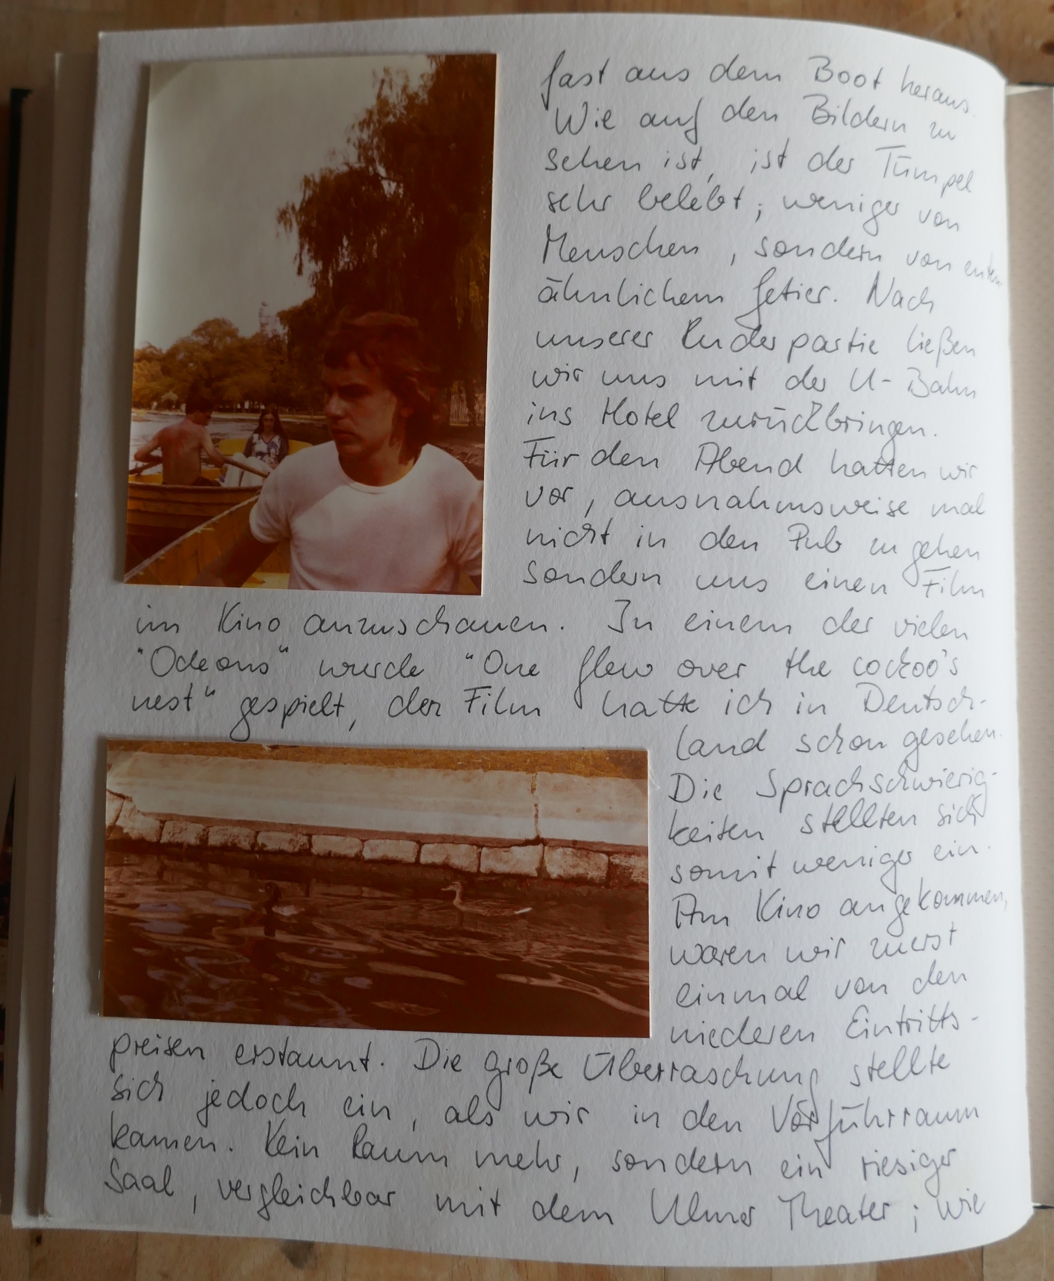 fast aus dem Boot heraus.
Wie auf den Bildern zu
sehen ist, ist der Tümpel
sehr belebt; weniger von
Menschen, sondern von enten
ähnlichem Getier. Nach
unserer Ruderpartie ließen
wir uns mit der U-Bahn
ins Hotel zurückbringen.
Für den Abend hatten wir
vor, ausnahmsweise mal
nicht in den Pub zu gehen
sondern uns einen Film
im Kino anzuschauen. In einem der vielen
"Odeons" wurde "One flew over the cockoo's
nest" gespielt, den Film hatte ich in Deutsch-
land schon gesehen.
Die Sprachschwierig-
keiten stellten sich
somit weniger ein.
Am Kino angekommen,
waren wir zuerst
einmal von den
niederen Eintritts-
preisen erstaunt. Die große Überraschung stellte
sich jedoch ein, als wir in den Vorführraum
kamen. Kein Raum mehr, sondern ein riesiger
Saal, vergleichbar mit dem Ulmer Theater; wie